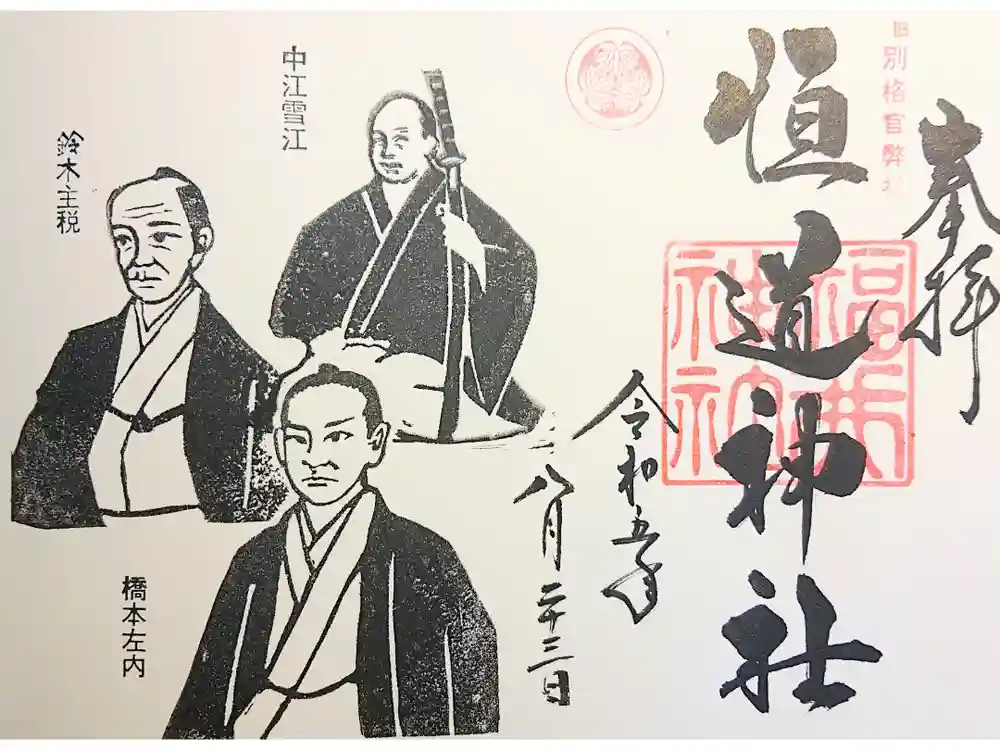 奉拝
旧別格官弊社
恒道神社
福井神社
令和五年
八月二十三日
中江雪江
鈴木主税
橋本左内